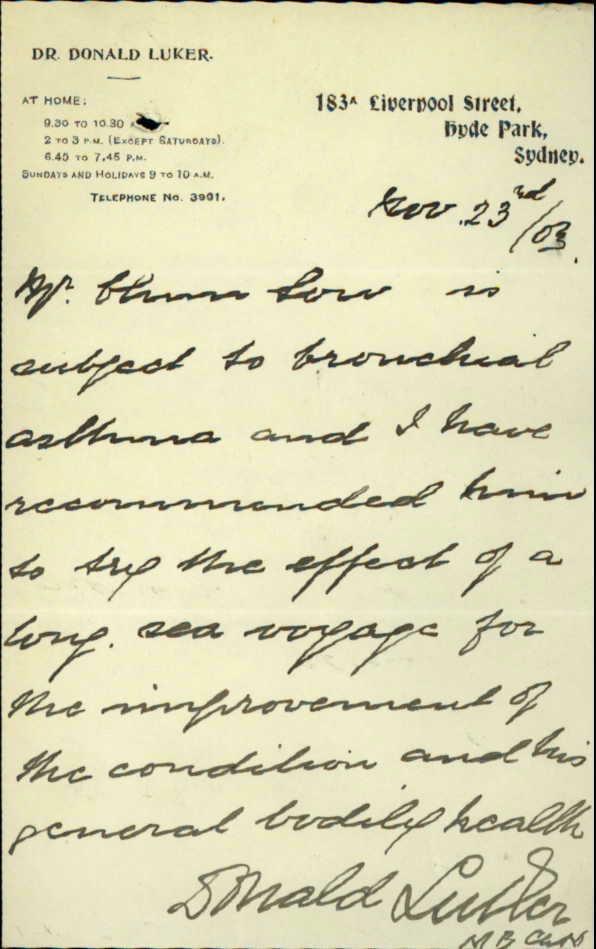 DR. DONALD LUKER.
AT HOME:
9.30 TO 10.30
2 TO 3 P.M. (EXCEPT SATURDAYS).
6.45 TO 7.45 P.M.
SUNDAYS AND HOLIDAYS 9 TO 10 A.M.
TELEPHONE NO. 3901.
183A Liverpool Street,
Hyde Park,
Sydney.
Nov. 23rd/03.
Mr. Chum Low is
subject to bronchial
asthma and I have
recommended him
to try the effect of a
long sea voyage for
the improvement of
the condition and his
general bodily health
Donald Luker
M B